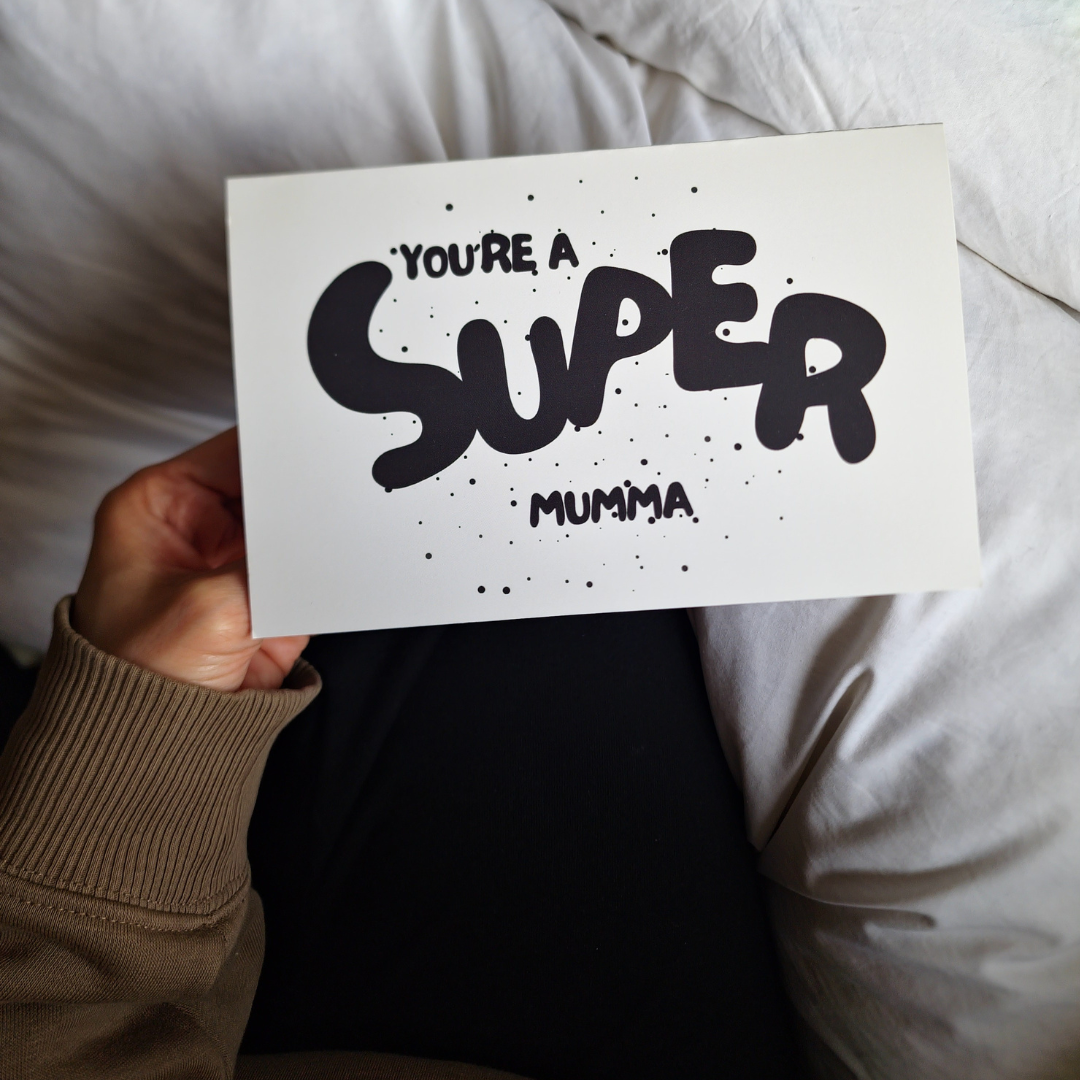 YOU'RE A
SUPER
MUMMA